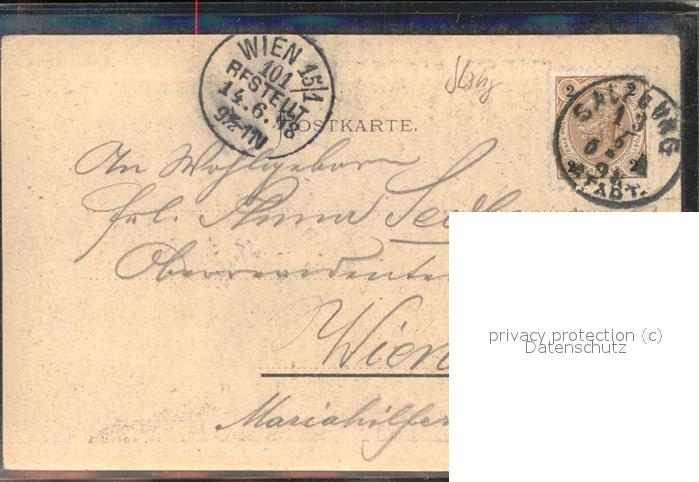 WIEN 15/1
101
BESTELLT
14.6.98
9½-11V
POSTKARTE.
2 2
SALZBURG
2 2
STADT.
An Wohlgeboren
Frl. Anna
Oberrevidenten
Wien
Mariahilfer
privacy protection (c)
Datenschutz